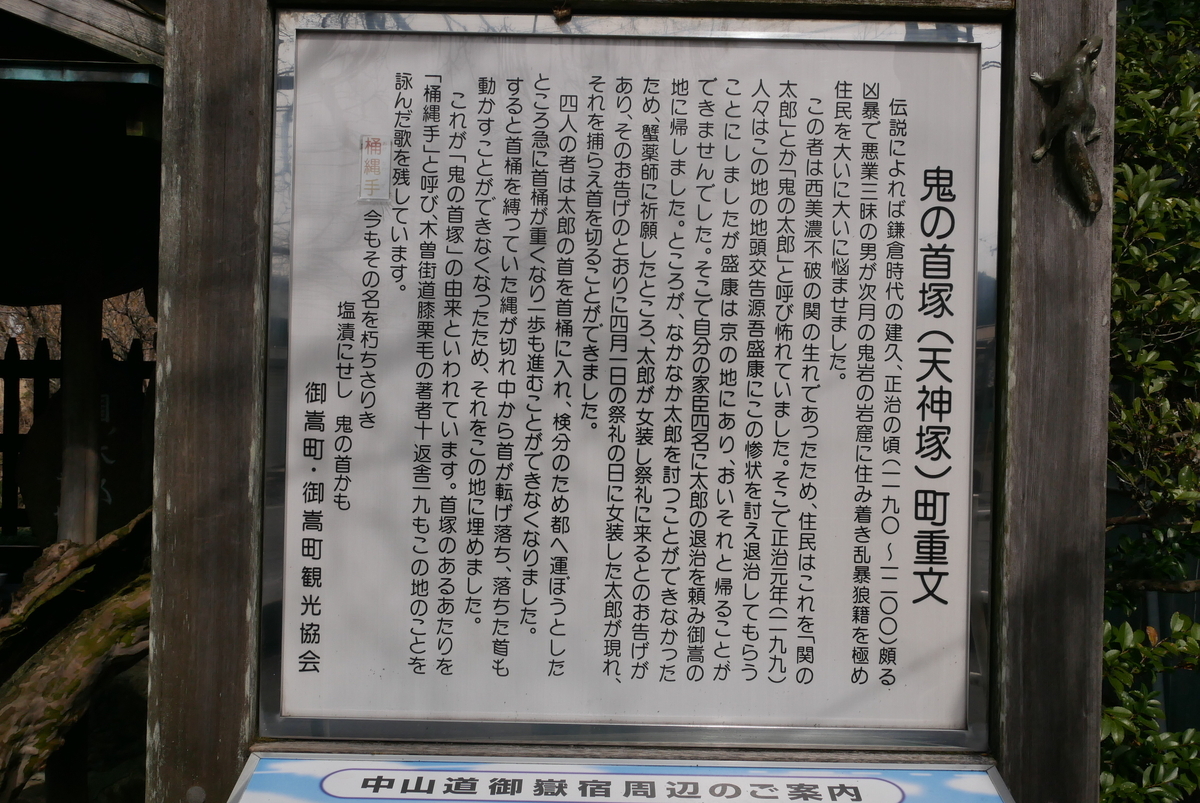 鬼の首塚（天神塚）町重文
伝説によれば鎌倉時代の建久、正治の頃（一一九〇～一二〇〇）頗る
凶暴で悪業三昧の男が次月の鬼岩の岩窟に住み着き乱暴狼籍を極め
住民を大いに大いに悩ませました。
この者は西美濃不破の関の生れであったため、住民はこれを「関の
太郎」とか「鬼の太郎」と呼び怖れていました。そこで正治元年（一一九九）
人々はこの地の地頭交告源吾盛康にこの惨状を訴え退治してもらう
ことにしましたが盛康は京の地にあり、おいそれと帰ることが
できませんでした。そこで自分の家臣四名に太郎の退治を頼み御嵩の
地に帰しました。ところが、なかなか太郎を討つことができなかった
ため、蟹薬師に祈願したところ、太郎が女装し祭礼に来るとのお告げが
あり、そのお告げのとおりに四月一日の祭礼の日に女装した太郎が現れ、
それを捕らえ首を切ることができました。
四人の者は太郎の首を首桶に入れ、検分のため都へ運ぼうとした
ところ急に首桶が重くなり一歩も進むことができなくなりました。
すると首桶を縛っていた縄が切れ中から首が転げ落ち、落ちた首も
動かすことができなくなったため、それをこの地に埋めました。
これが「鬼の首塚」の由来といわれています。首塚のあるあたりを
「桶縄手」と呼び、木曽街道膝栗毛の著者十返舎一九もこの地のことを
詠んだ歌を残しています。
桶縄手 今もその名を朽ちさりき
塩漬にせし 鬼の首かも
御嵩町・御嵩町観光協会
中山道御嶽宿周辺のご案内